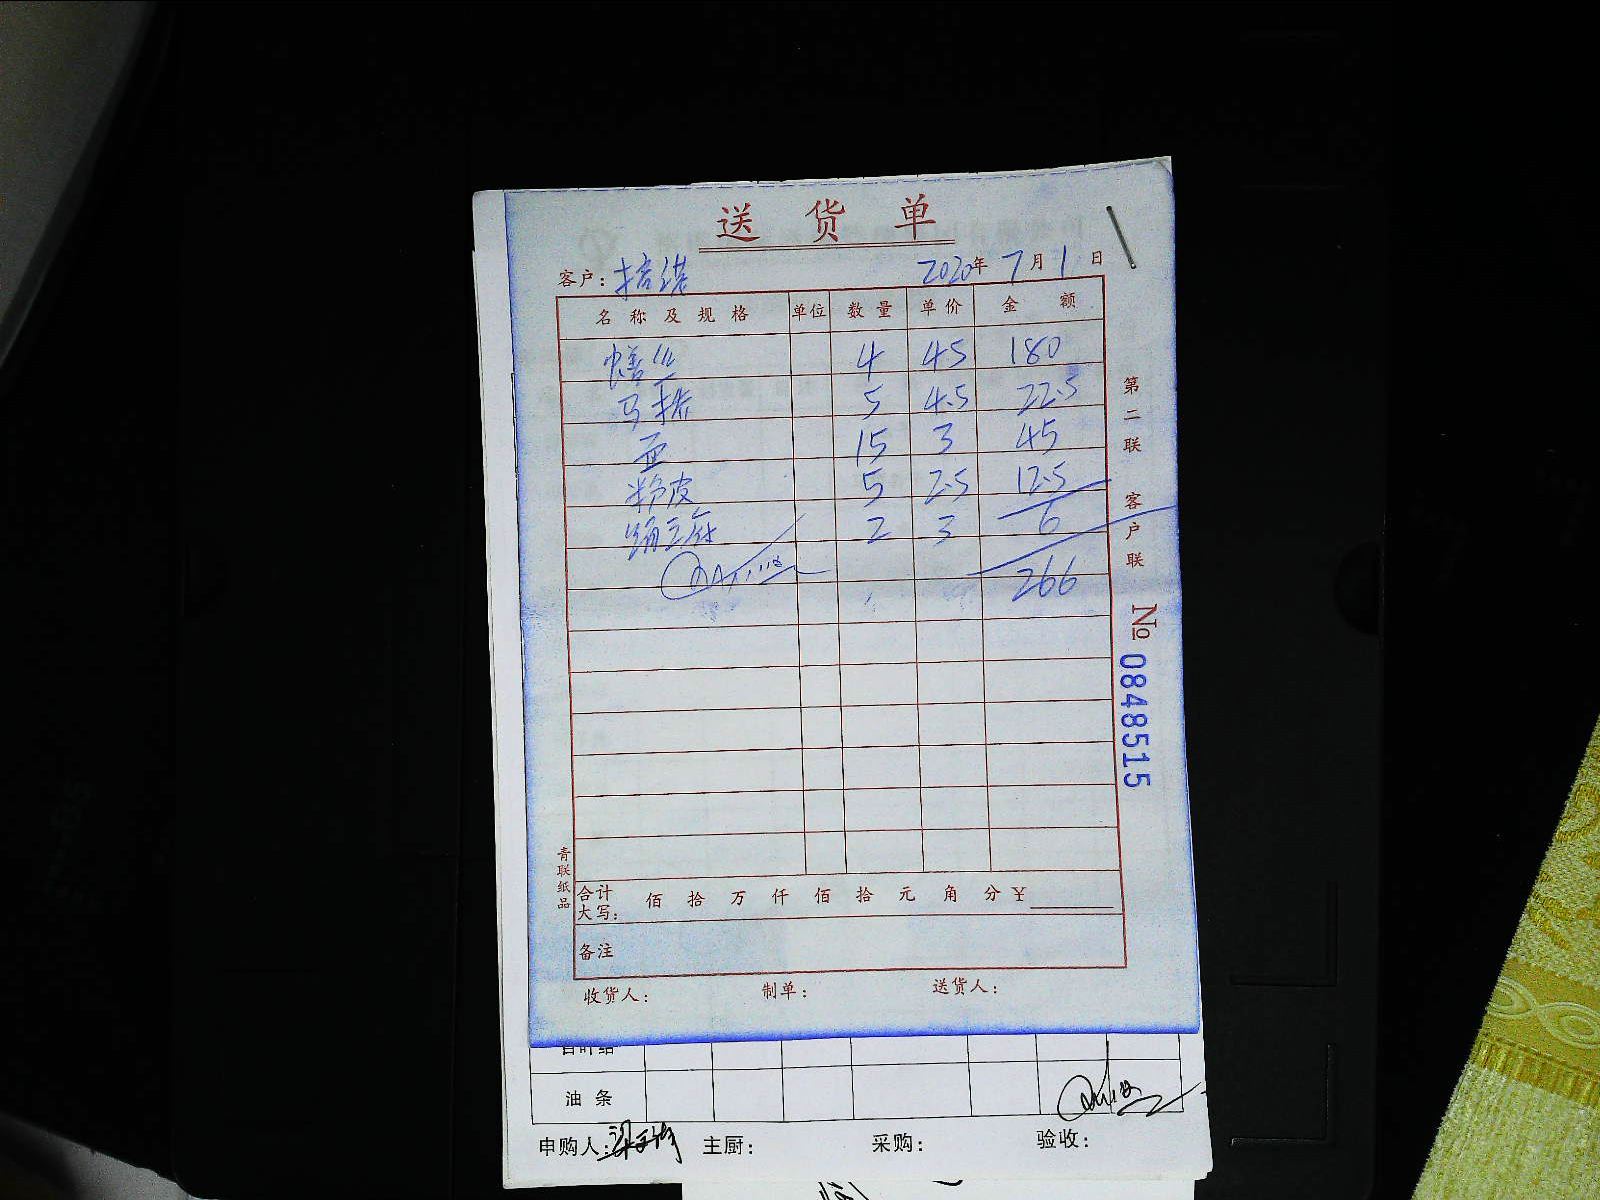 送货单
客户: 培港 2020年7月1日
名称及规格 单位 数量 单价 金额
鳝丝 4 45 180
马桥 5 4.5 22.5
面 15 3 45
粉皮 5 2.5 12.5
绢豆腐 2 3 6
266
第二联 客户联
№ 0848515
青联纸品
合计大写: 佰 拾 万 仟 佰 拾 元 角 分 ¥
备注
收货人: 制单: 送货人:
百叶结
油条
申购人: 主厨: 采购: 验收: